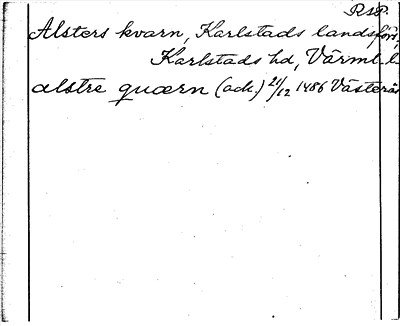 RSP.
Alsters kvarn, Karlstads landsförs,
Karlstads hd, Värml. l.
alstre quærn (ack.) 21/12 1486 Västerås